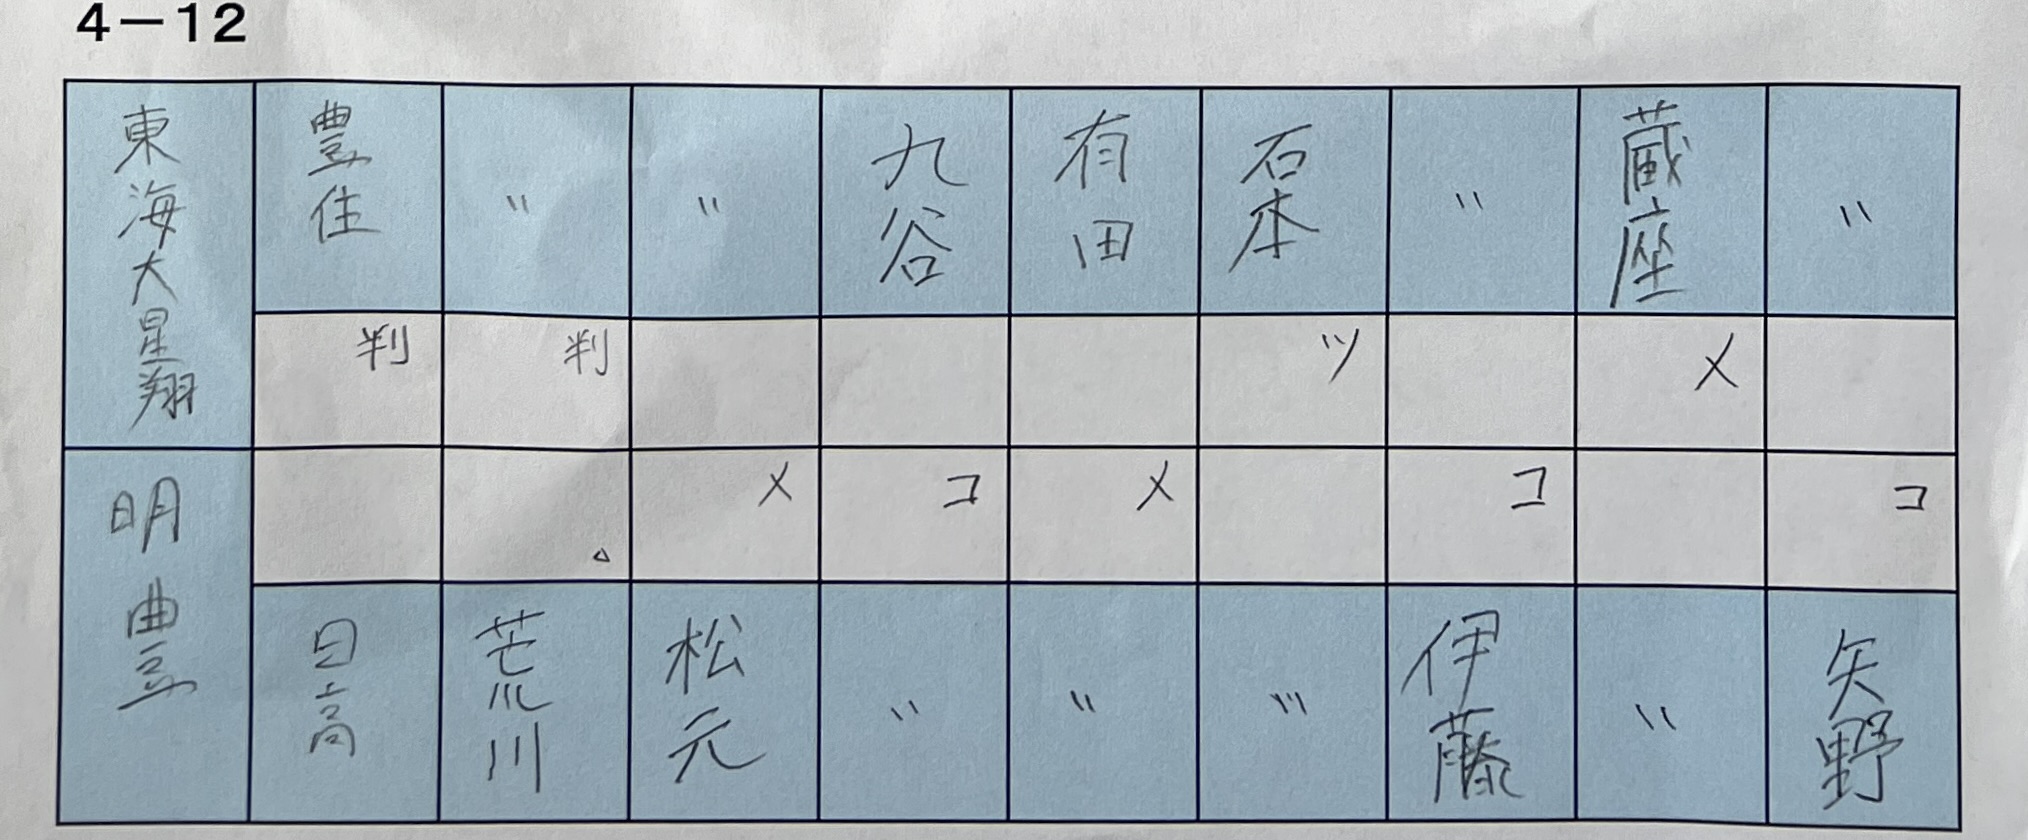 4－12
東海大星翔 豊住 〃 〃 九谷 有田 石本 〃 蔵座 〃
判 判 ツ メ
メ コ メ コ コ
△
明豊 日高 荒川 松元 〃 〃 〃 伊藤 〃 矢野